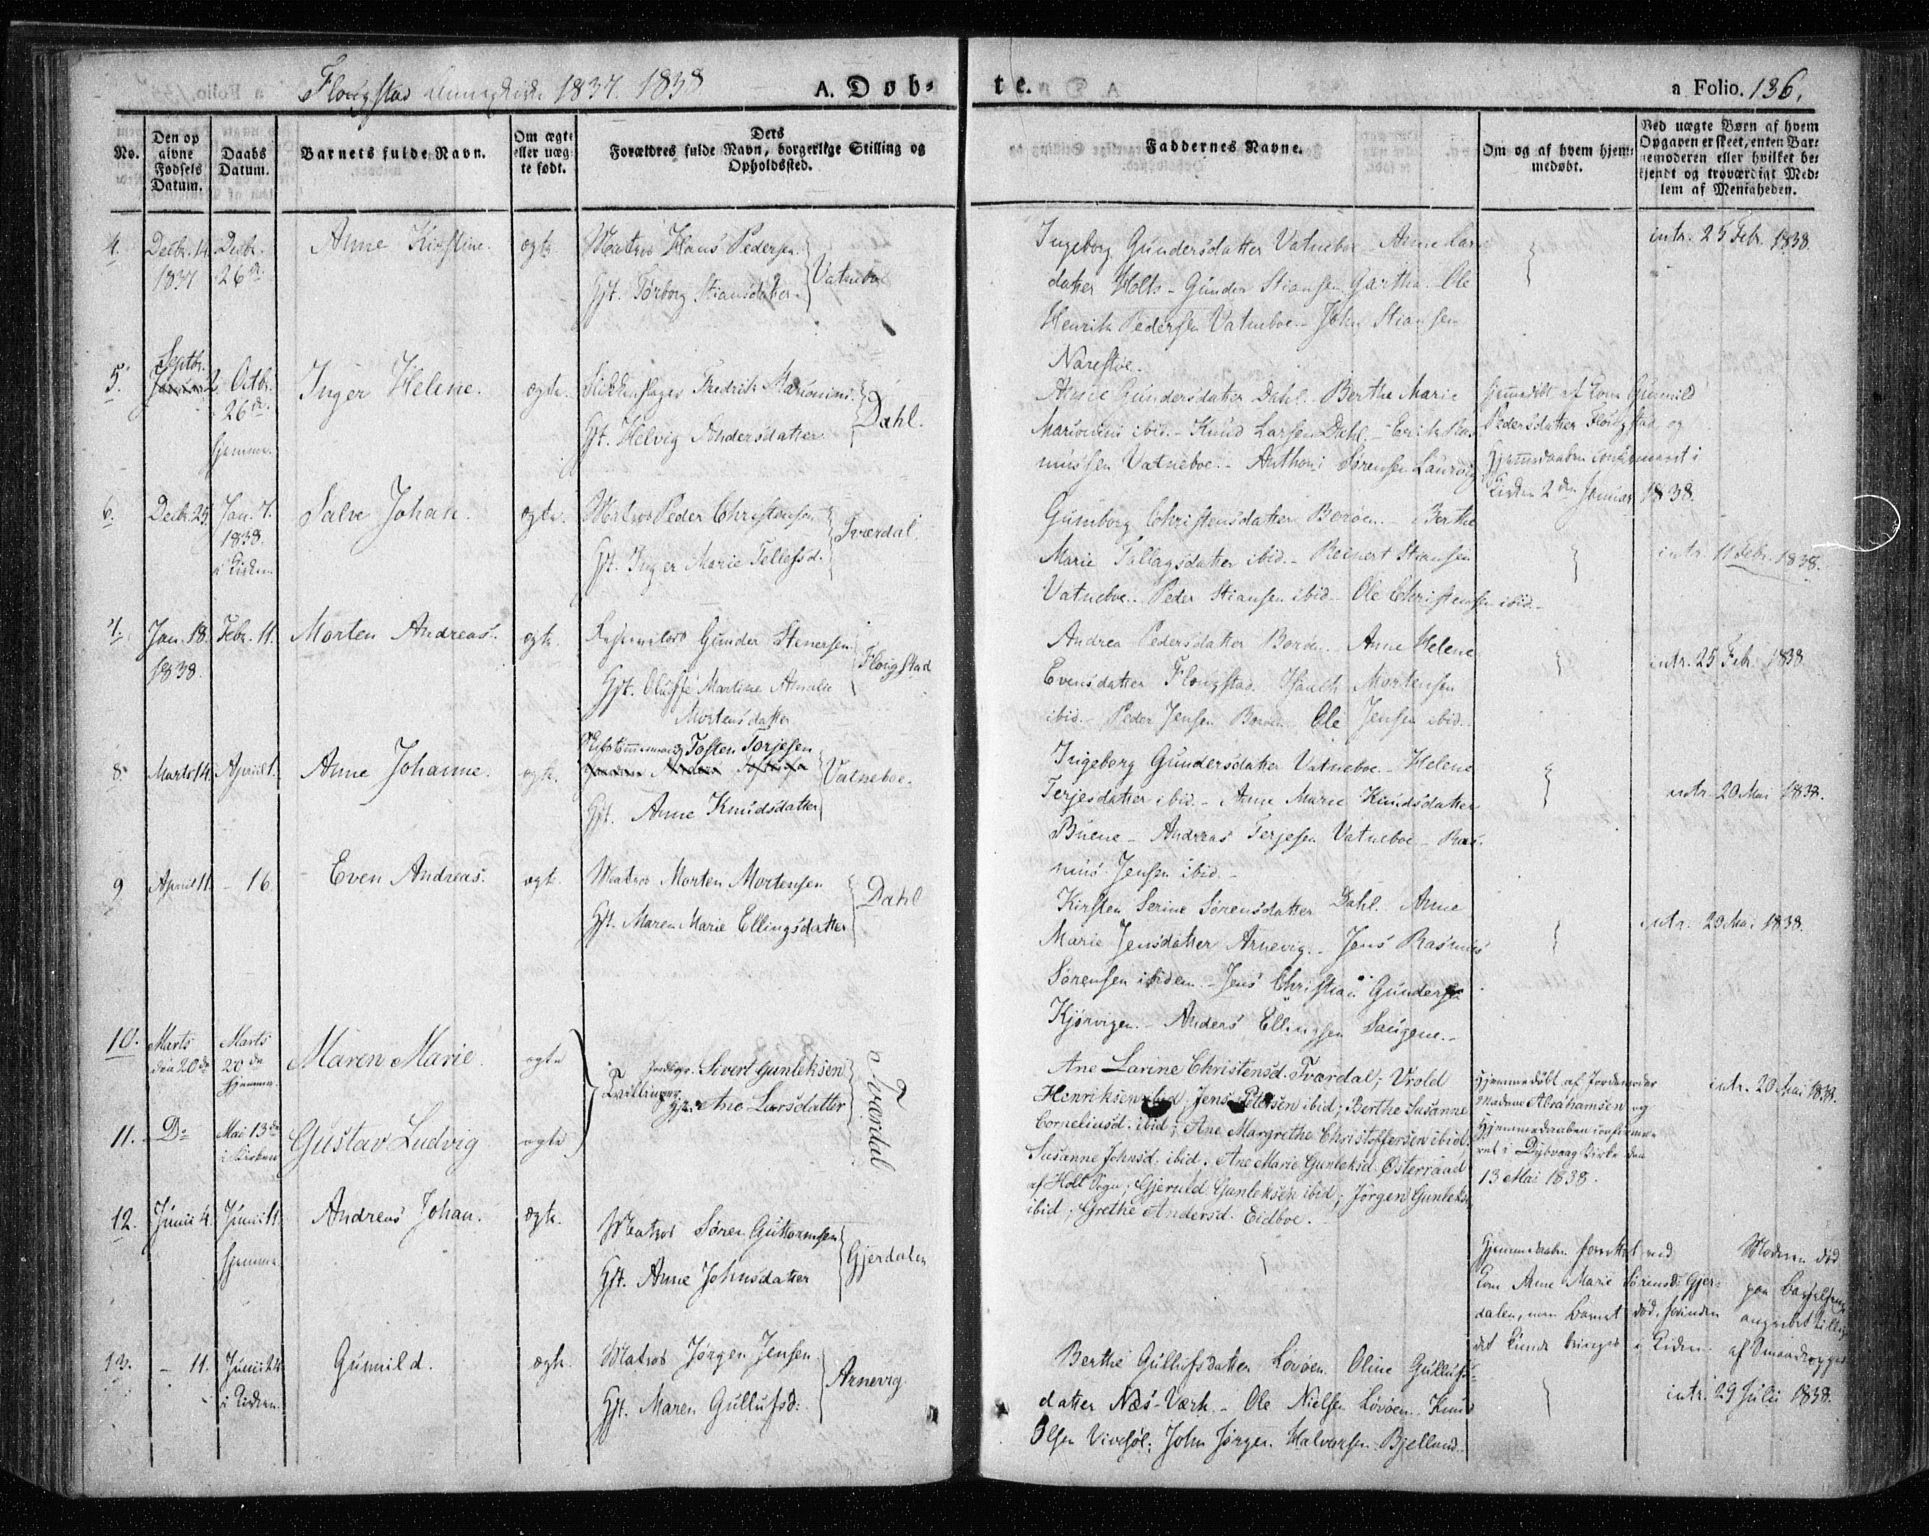 1837. 1838
A. Døb-
te.
a Folio. 136.
No.
Den op
givne
Fødsels
Datum.
Daabs
Datum.
Barnets fulde Navn.
Om ægte
eller uæg-
te født.
Dets
Forældres fulde Navn, borgerlige Stilling og
Opholdssted.
Faddernes Navne.
Om og af hvem hjem-
medøbt.
Ved uægte Børn af hvem
Opgaven er skeet, enten Bar-
nemoderen eller hvilket be-
kjendt og troværdigt Med-
lem af Menigheden.
4.
Decbr. 14.
1837
Decbr.
26de
Anne Kirstine.
ægte
Matros Hans Pedersen
Gft. Torborg Stiansdatter
Vatneboe
Ingeborg Gundersdatter Vatneboe - Anne Lars
datter Holte - Gunder Stiansen Gartha. Ole
Henrik Pedersen Vatneboe - John Stiansen
Narestøe.
intr. 25 Febr. 1838.
5.
Septbr.
2
Octbr.
26de
hjemme
Inger Helene.
ægte.
Fredrik
Gft. Helvig
Dahl.
Gundersdatter Dahl. Berthe Marie
ibid. - Knud Larsen Dahl. - Erik Ras
mussen Vatneboe. - Anthoni Sørensen Laurvig
hjemdøbt af Kone Gunild
Pedersdatter og
Hjemmedaaben confirmeret i
Kirken 2den Januar 1838.
6.
Decbr. 25.
Jan. 7.
1838.
i Kirken
Salve Johan.
ægte.
Matros Peder Christensen
Gft. Inger Marie Tellefsd.
Tværdal.
Gunborg Christensdatter Borøen. - Berthe
Marie Tallagsdatter ibid. - Reinert Stiansen
Vatneboe. Peder Stiansen ibid. Ole Christensen ibid.
intr. 11 Febr. 1838.
7.
Jan. 18.
1838.
Febr. 11.
Morten Andreas.
ægte.
Gunder Stenersen
Gft. Martine Amalie
Mortensdatter
Flougstad
Andrea Pedersdatter Borøen. Anne Helene
Evensdatter Flougstad. Mortensen
ibid. Peder Jensen Borøen. Ole Jensen ibid.
intr. 25 Febr. 1838.
8.
Marts 14.
April 1.
Anne Johanne.
ægte.
Tosten Torjesen
Gft. Anne Knudsdatter
Vatneboe.
Ingeborg Gundersdatter Vatneboe - Helene
Terjesdatter ibid. - Anne Marie Knudsdatter
Buene - Andreas Terjesen Vatneboe - Ras
mus Jensen ibid. -
intr. 20 Mai 1838.
9
April 11.
- 16.
Even Andreas.
ægte.
Matros Morten Mortensen
Gft. Maren Marie Ellingsdatter
Dahl
Kirsten Serine Sørensdatter Dahl. Anne
Marie Jensdatter Arnevig. - Jens Rasmus
Sørensen ibidem. - Jens Christian Gunders.
Kjørvigen. - Anders Ellingsen Saugene. -
intr. 20 Mai 1838.
10.
Marts
20de
Marts
20de
hjemme
Maren Marie
ægte
Tvillinger
Sivert Gunleksen
Gft. Ane Larsdatter
Tværdal
Ane Larine Christensd. Tværdal; Vrold
Henriksen ibid; Jens Petersen ibid; Berthe Susanne
Corneliusd. ibid; Ane Margrethe Christoffersen ibid;
Susanne Johnsd. ibid. Ane Marie Gunleksd. Østerraad
af Holt Sogn; Gjeruld Gunleksen ibid; Jörgen Gunleks.
ibid; Grethe Andersd. Eidboe.
Hjemmedøbt af Jordemoder
Madame Abrahamsen og
Hjemmedaaben confirme-
ret i Dybvaag Kirke den
13 Mai 1838.
intr. 20 Mai 1838.
11.
Do
Mai 13de
i Kirken
Gustav Ludvig
ægte
12.
Junii 4.
Junii 11.
hjemme
Andreas Johan.
ægte.
Matros Søren Guttormsen
Gft. Anne Johnsdatter
Gjerdalen
Hjemmedaaben forrettet ved
Kone Anne Marie Sørensd. Gjer-
dalen, men Barnet død, forinden
det kunde bringes i Kirken.
Moderen død
paa Barselseng
angrebet tillige
af
13.
- 11.
Junii 24
i Kirken
Gunild.
ægte.
Matros Jørgen Jensen
Gft. Maren Gullufsd:
Arnevig.
Berthe Gullufsdatter Løvøen. Oline Gullufs-
datter Næs-Værk. - Ole Nielsen Løvøen. Knud
Olsen; John Jørgen Halvorsen Bjelland.
intr. 29 Julii 1838.